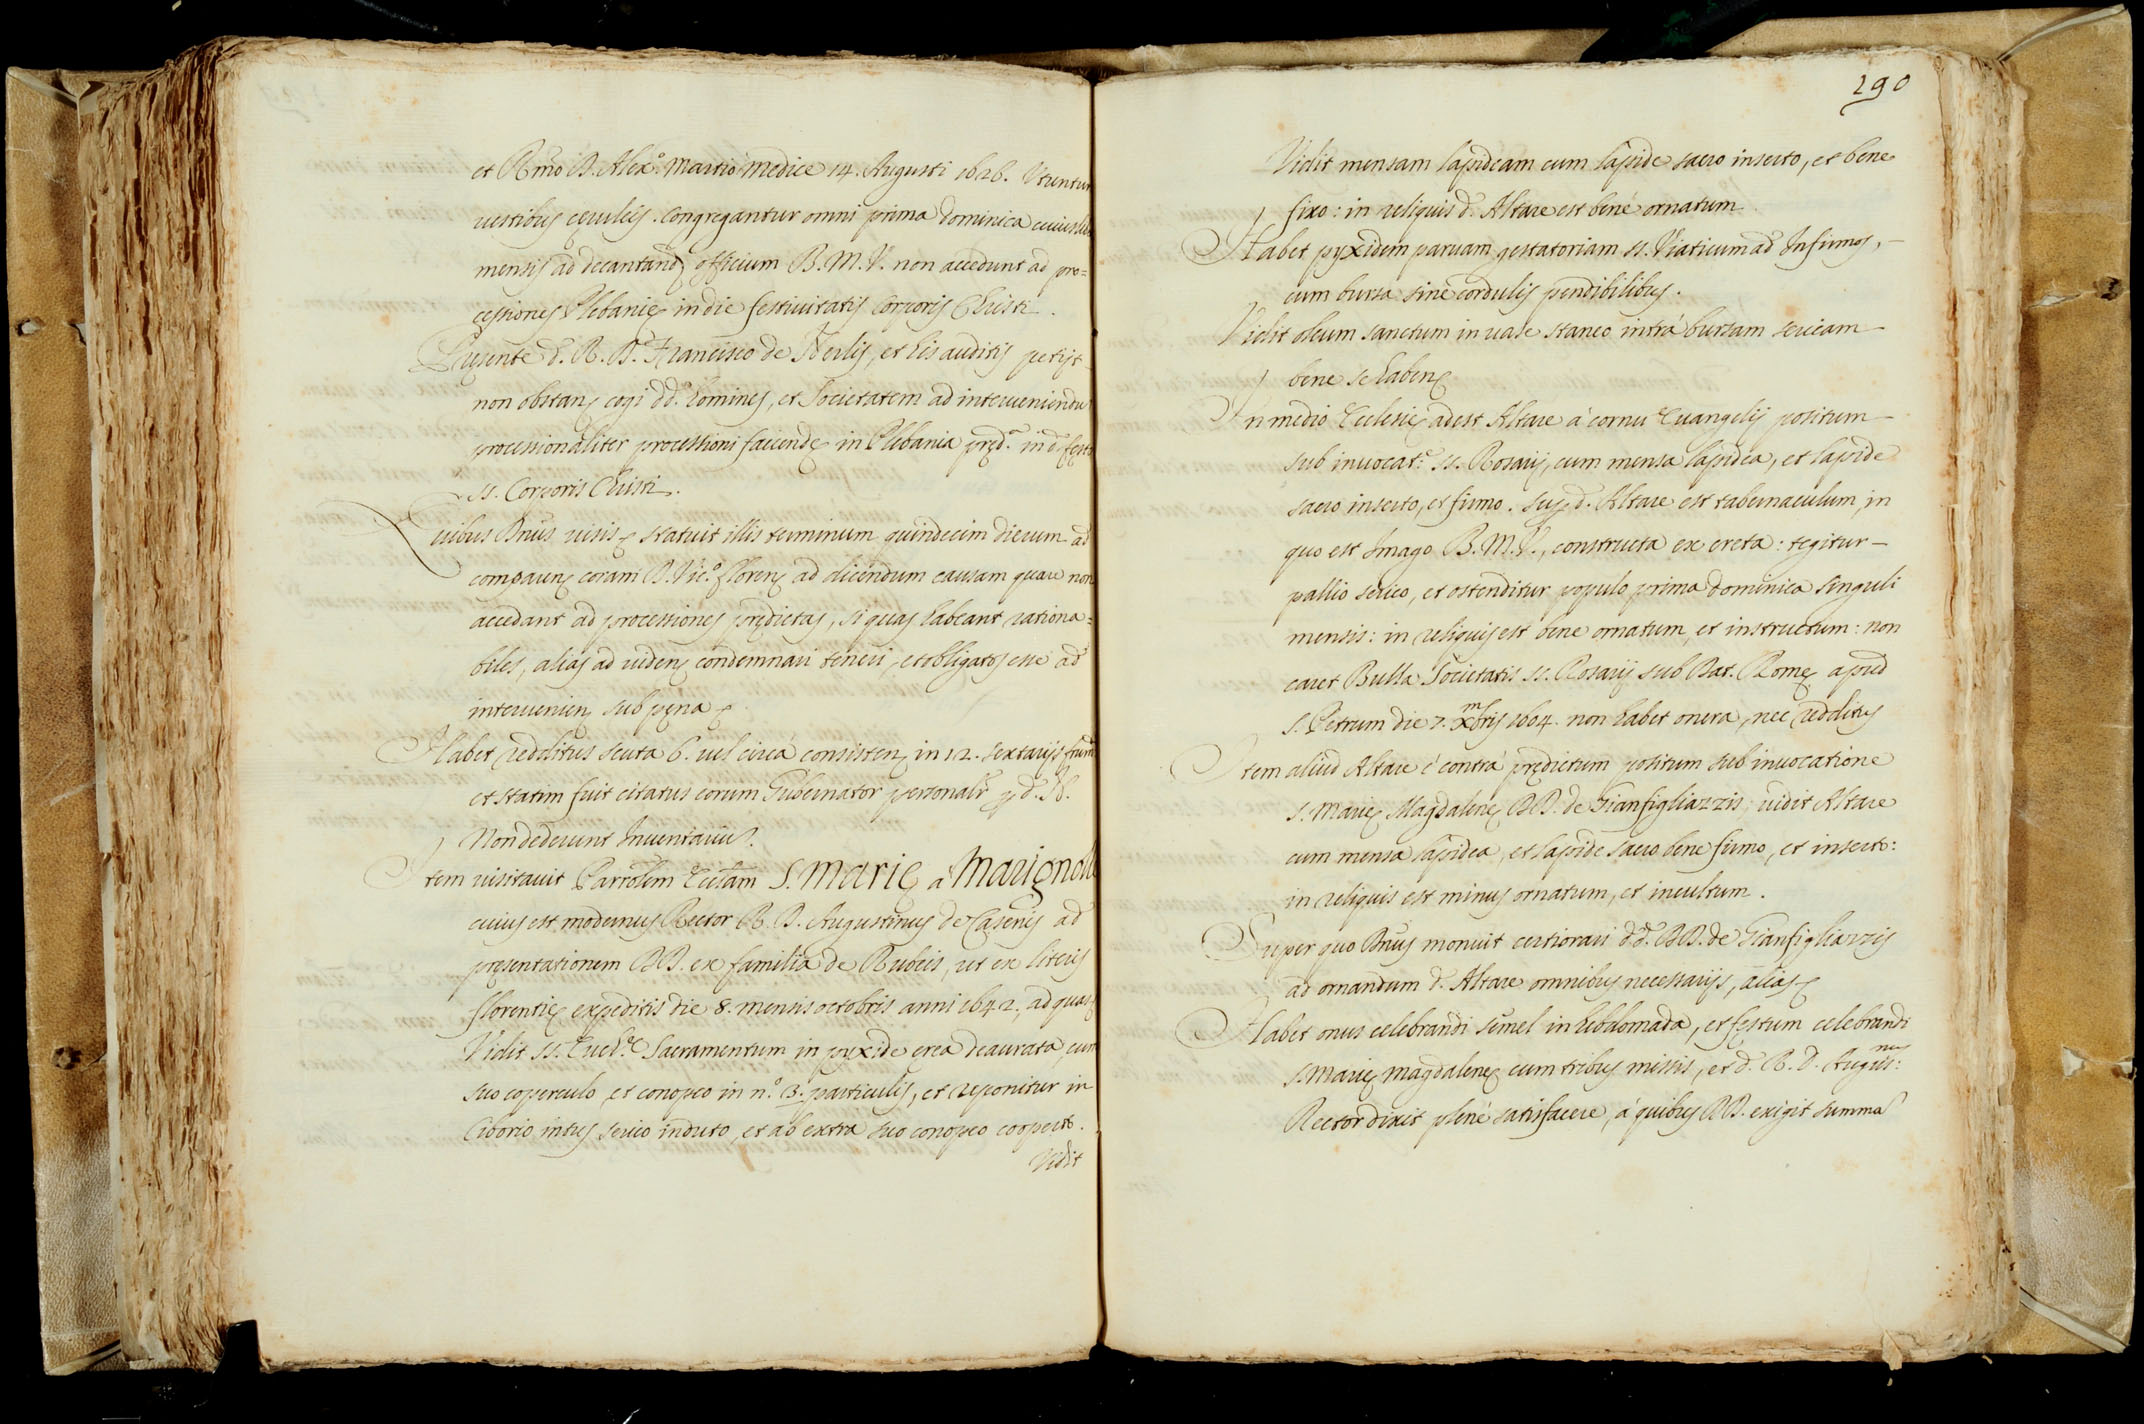 et R.mo D. Alex.o Martio Medice 14. Augusti 1626. Utuntur
vestibus ceruleis. Congregantur omni prima dominica cuiuslib.
mensis ad decantand. officium B. M. V. non accedunt ad pro=
cessiones Plebanię in die festivitatis Corporis Christi.
Pręsente d. R. D. Francisco de Nerlis, et his auditis petijt
non obstan. cogi dd. homines, et Societatem ad interveniendu
processionaliter processioni faciendę in Plebania pręd.a in d. festo
SS. Corporis Christi.
Quibus D.nus visis etc. statuit illis terminum quindecim dierum ad
comparen. coram D. Vic.o Floren. ad dicendum causam quare non
accedant ad processiones prędictas, si quas habeant rationa=
biles, alias ad viden. condemnari teneri, et obligatos esse ad
intervenien. sub pęna etc.
Habet redditus scuta 6. vel circà consisten. in 12. sextarijs frum.
et statim fuit citatus eorum Gubernator personalr p d. N.
Non dederunt Inventariu.
Item visitavit Parrolem Eccłam S. Marię à Marignolla
cuius est modernus Rector R. D. Augustinus de Caseris ad
pręsentationem DD. ex familia de Rubeis, ut ex literis
Florentię expeditis die 8. mensis octobris anni 1642, ad quas etc.
Vidit SS. Euch.e Sacramentum in pyxide erea deaurata, cum
suo coperculo et conopeo in n.o 13. particulis, et reponitur in
Ciborio intus serico induto, et ab extra suo conopeo cooperto.
Vidit
290
Vidit mensam lapideam cum lapide sacro inserto, et bene
fixo: in reliquis d. Altare est bene ornatum.
Habet pyxidem parvam gestatoriam SS. Viaticum ad Infirmos,
cum bursa sine cordulis pendibilibus.
Vidit oleum sanctum in vase staneo intrà bursam sericam
bene se haben.
In medio Ecclesię adest Altare à cornu Euangelij positum
sub invocat.e SS. Rosarij, cum mensa lapidea, et lapide
sacro inserto, et firmo. sup. d. Altare est tabernaculum, in
quo est Imago B. M. V., constructa ex creta: tegitur
pallio serico, et ostenditur populo prima dominica singuli
mensis: in reliquis est bene ornatum, et instructum: non
caret Bulla Societatis SS. Rosarij sub Dat. Romę apud
S. Petrum die 7. Xmbris 1604. non habet onera, nec redditus
Item aliud Altare è contrà prędictum positum sub invocatione
S. Marię Magdalenę DD. de Gianfigliazzis, vidit Altare
cum mensa lapidea, et lapide sacro bene firmo, et inserto:
in reliquis est minus ornatum, et incultum.
Super quo D.nus monuit certiorari d.d. DD. de Gianfigliazzis
ad ornandum d. Altare omnibus necessarijs, alias etc.
Habet onus celebrandi semel in hebdomada, et festum celebrandi
S. Marię Magdalenę cum tribus missis, et d. R. D. Augus.nus
Rector dixit plenè satisfacere, à quibus DD. exigit summa